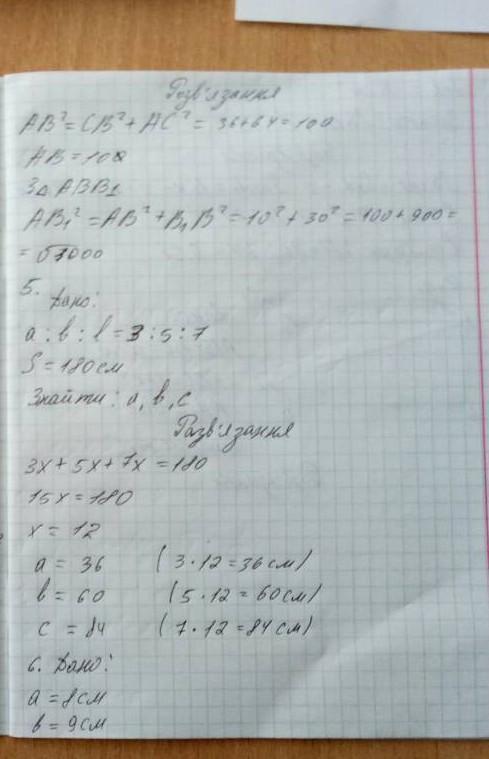 Розв'язання
AB² = CB² + AC² = 36+64 = 100
AB = 100
З△ ABB₁
AB₁² = AB² + B₁B² = 10² + 30² = 100 + 900 =
= √1000
5. Дано:
a : b : l = 3 : 5 : 7
S = 180 см
Знайти: a, b, c
Розв'язання
3x + 5x + 7x = 180
15x = 180
x = 12
a = 36 (3 · 12 = 36 см)
b = 60 (5 · 12 = 60 см)
c = 84 (7 · 12 = 84 см)
6. Дано:
a = 8 см
b = 9 см